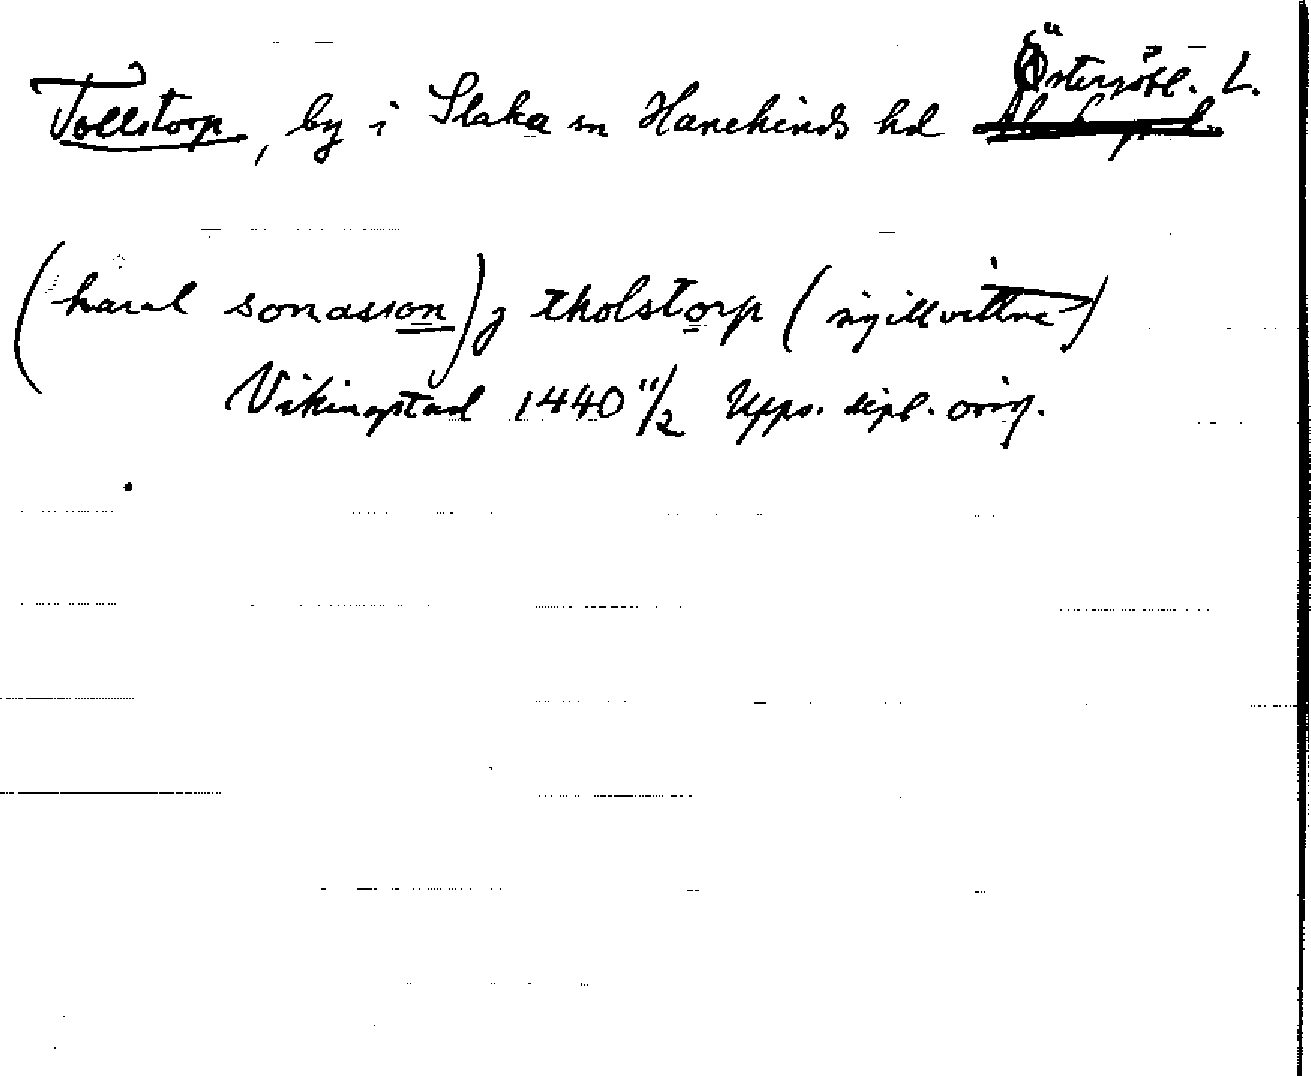 Tollstorp, by i Slaka sn Hanekinds hd Östergötl. L.
(haral sonasson) j tholstorp (sigillvittne)
Vikingstad 1440 11/2 Upps. dipl. orig.